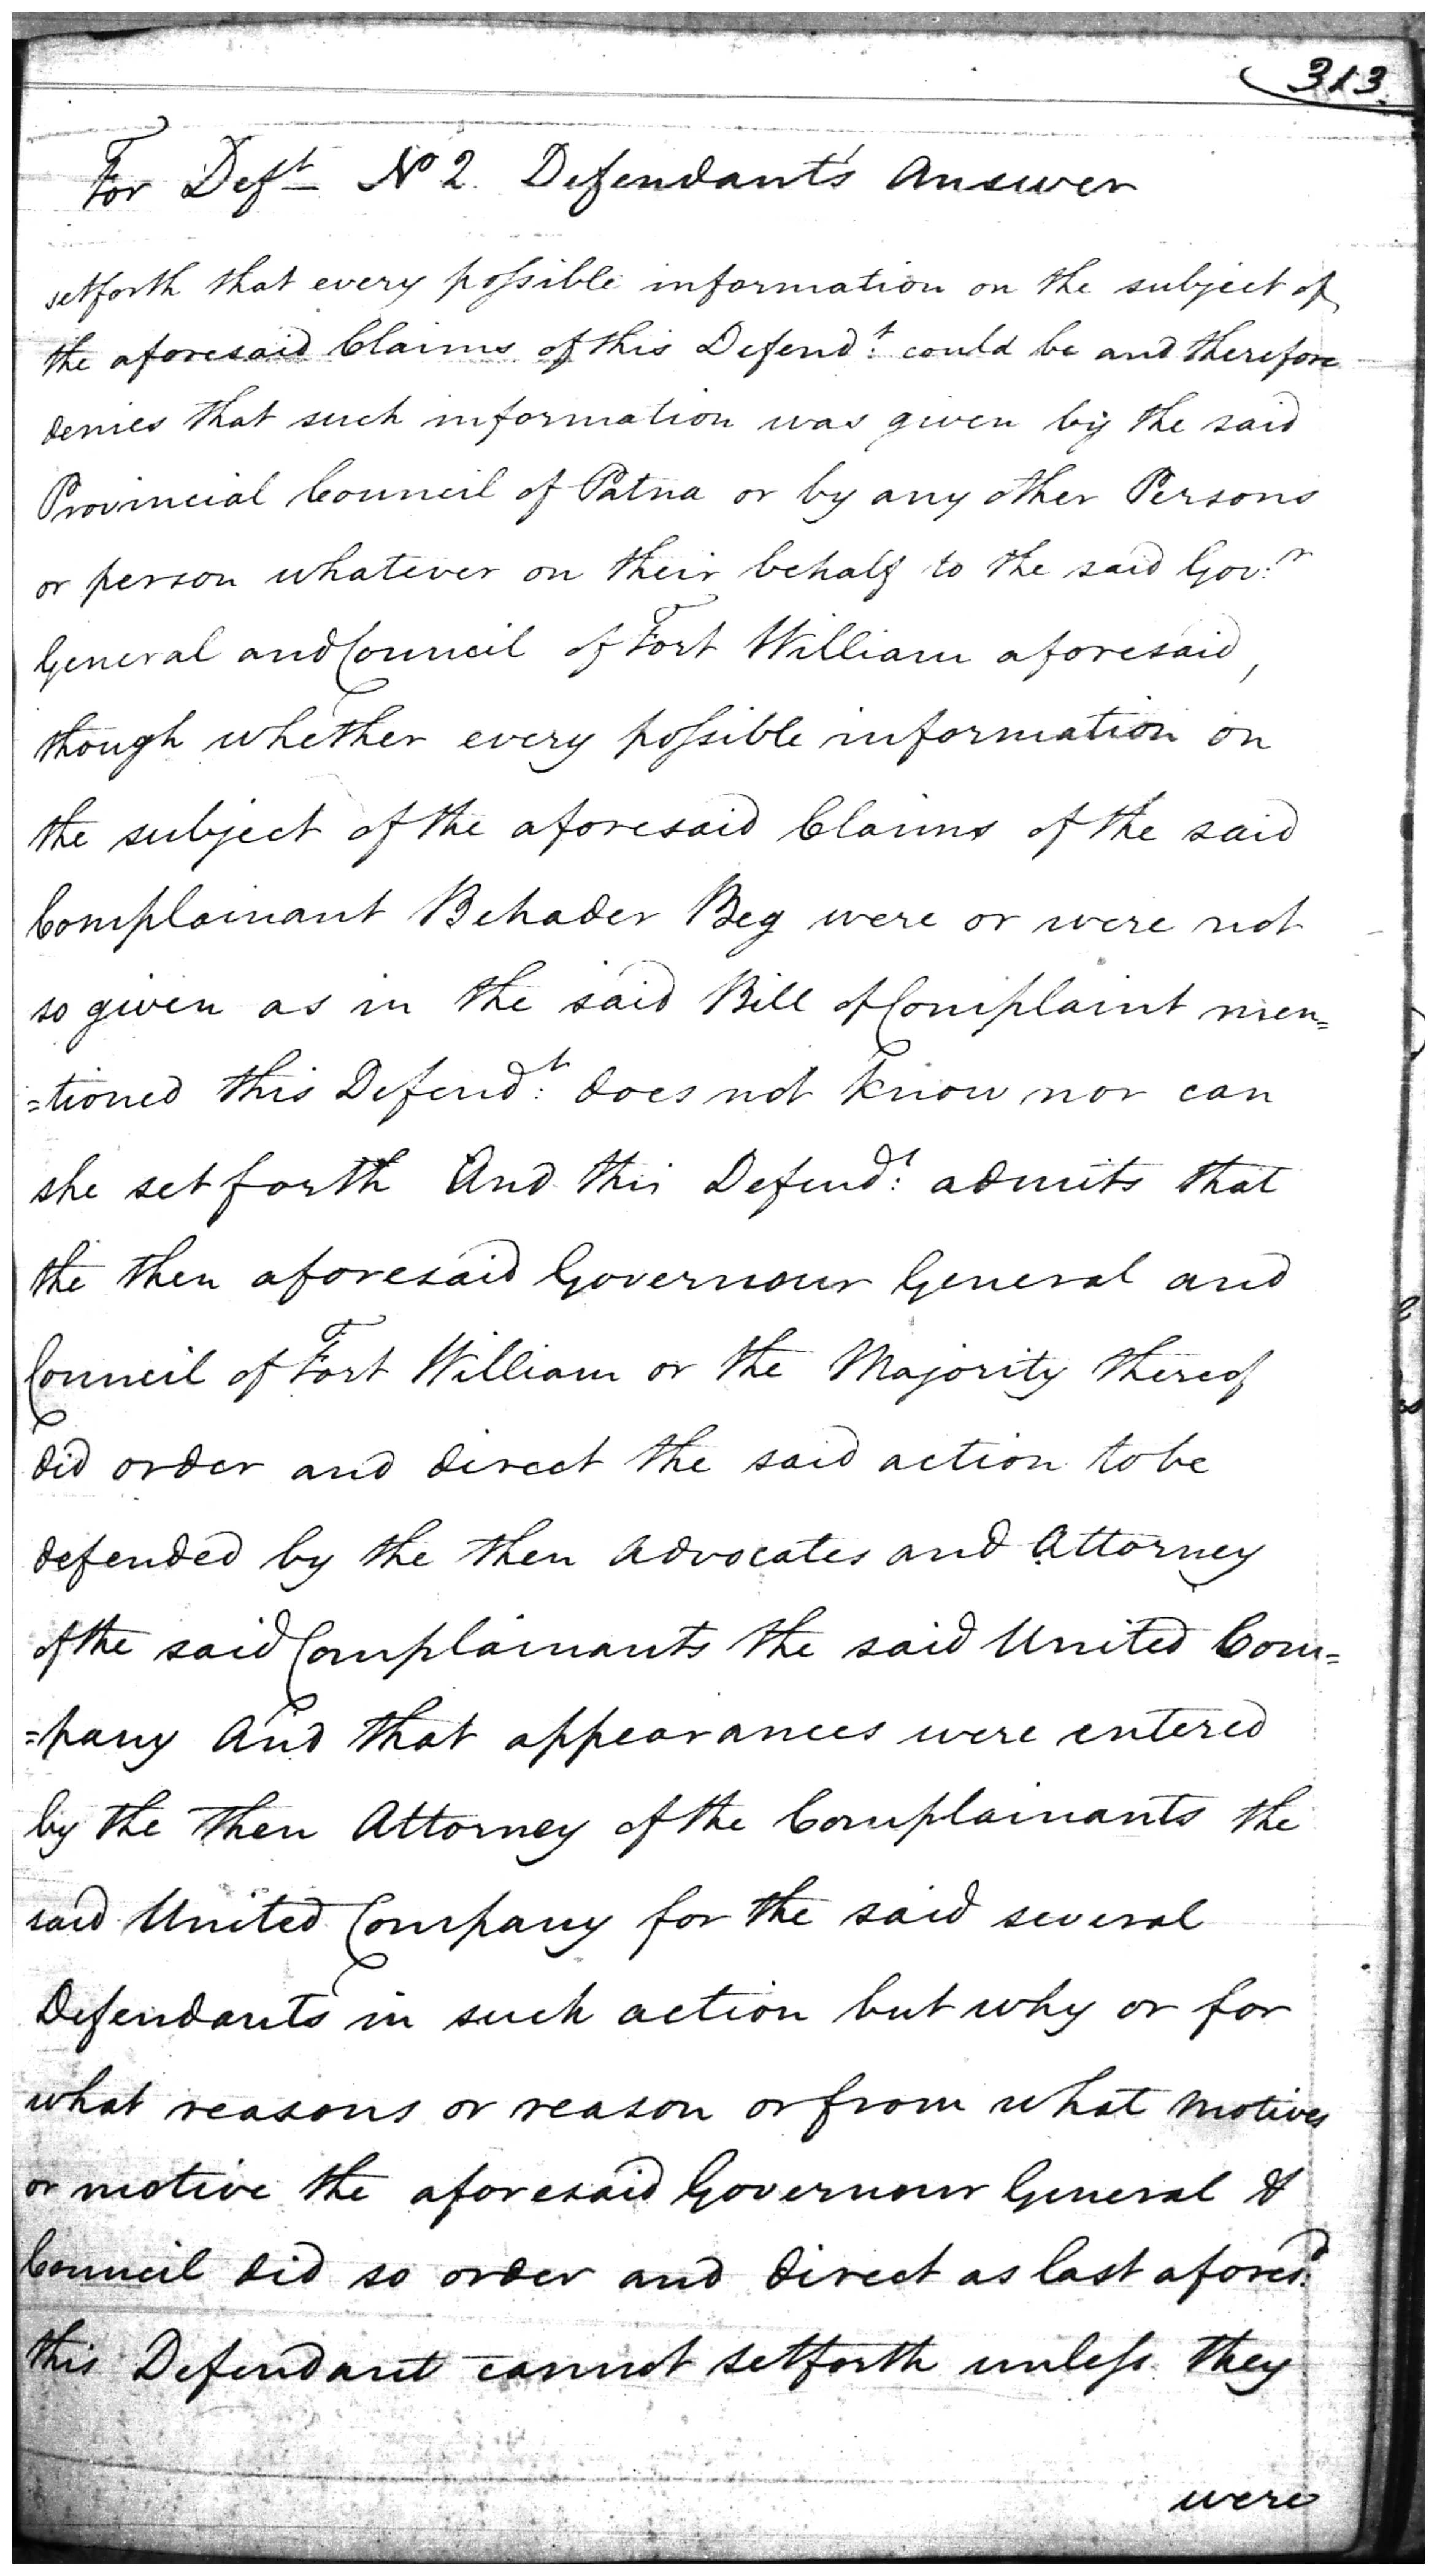 313.
For Deft No 2. Defendant's Answer
setforth that every possible information on the subject of
the aforesaid Claims of this Defend:t could be and therefore
denies that such information was given by the said
Provincial Council of Patna or by any other Persons
or person whatever on their behalf to the said Gov:r
General and Council of Fort William aforesaid,
though whether every possible information on
the subject of the aforesaid Claims of the said
Complainant Behader Beg were or were not
so given as in the said Bill of Complaint men=
=tioned this Defend:t does not know nor can
she set forth And this Defend:t admits that
the then aforesaid Governour General and
Council of Fort William or the Majority thereof
did order and direct the said action to be
defended by the then Advocates and Attorney
of the said Complainants the said United Com=
=pany And that appearances were entered
by the then Attorney of the Complainants the
said United Company for the said several
Defendants in such action but why or for
what reasons or reason or from what motives
or motive the aforesaid Governour General &
Council did so order and direct as last afores:d
this Defendant cannot setforth unless they
were